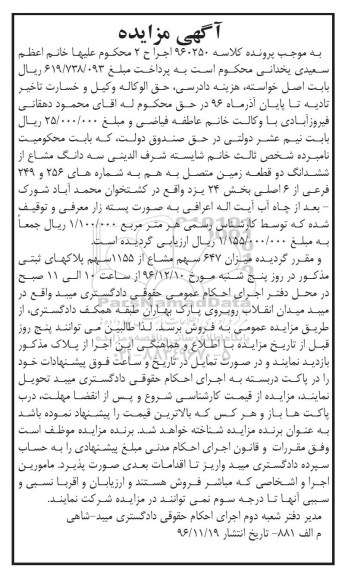 آگهی مزایده
به موجب پرونده کلاسه ۹۶۰۲۵۰ اجرا ح ۲ محکوم علیها خانم اعظم
سعیدی یخدانی محکوم است به پرداخت مبلغ ۶۱۹/۷۳۸/۰۹۳ ریال
بابت اصل خواسته، هزینه دادرسی، حق الوکاله وکیل و خسارت تاخیر
تادیه تا پایان آذرماه ۹۶ در حق محکوم له اقای محمود دهقانی
فیروزآبادی با وکالت خانم عاطفه فیاضی و مبلغ ۲۵/۰۰۰/۰۰۰ ریال
بابت نیم عشر دولتی در حق صندوق دولت، که بابت محکومیت
نامبرده شخص ثالث خانم شایسته شرف الدینی سه دانگ مشاع از
ششدانگ دو قطعه زمین متصل به هم به شماره های ۲۵۶ و ۲۴۹
فرعی از ۶ اصلی بخش ۲۴ یزد واقع در کشتخوان محمد آباد شورک
- بعد از چاه آب آیت اله اعرافی به صورت پسته زار معرفی و توقیف
شده که توسط کارشناس رسمی هر متر مربع ۱/۱۰۰/۰۰۰ ریال جمعاً
به مبلغ ۱/۱۵۵/۰۰۰/۰۰۰ ریال ارزیابی گردیده است.
و مقرر گردیده میزان ۶۴۷ سهم مشاع از ۱۱۵۵سهم پلاکهای ثبتی
مذکور در روز پنج شنبه مورخ ۹۶/۱۲/۱۰ از ساعت ۱۰ الی ۱۱ صبح
در محل دفتر اجرای احکام عمومی حقوقی دادگستری میبد واقع در
میبد میدان انقلاب روبروی پارک بهاران طبقه همکف دادگستری، از
طریق مزایده عمومی به فروش برسد. لذا طالبین می توانند پنج روز
قبل از تاریخ مزایده با اطلاع و هماهنگی این اجرا از پلاک مذکور
بازدید نمایند و در صورت تمایل در تاریخ و ساعت فوق پیشنهادات خود
را در پاکت دربسته به اجرای احکام حقوقی دادگستری میبد تحویل
نمایند، مزایده از قیمت کارشناسی شروع و پس از انقضا مهلت، درب
پاکت ها باز و هر کس که بالاترین قیمت را پیشنهاد نموده باشد
به عنوان برنده مزایده شناخته خواهد شد. برنده مزایده موظف است
وفق مقررات و قانون اجرای احکام مدنی مبلغ پیشنهادی را به حساب
سپرده دادگستری میبد واریز تا اقدامات بعدی صورت پذیرد. مامورین
اجرا و اشخاصی که مباشر فروش هستند و ارزیابان و اقربا نسبی و
سببی آنها تا درجه سوم نمی توانند در مزایده شرکت نمایند.
مدیر دفتر شعبه دوم اجرای احکام حقوقی دادگستری میبد-شاهی
م الف ۸۸۱- تاریخ انتشار ۹۶/۱۱/۱۹